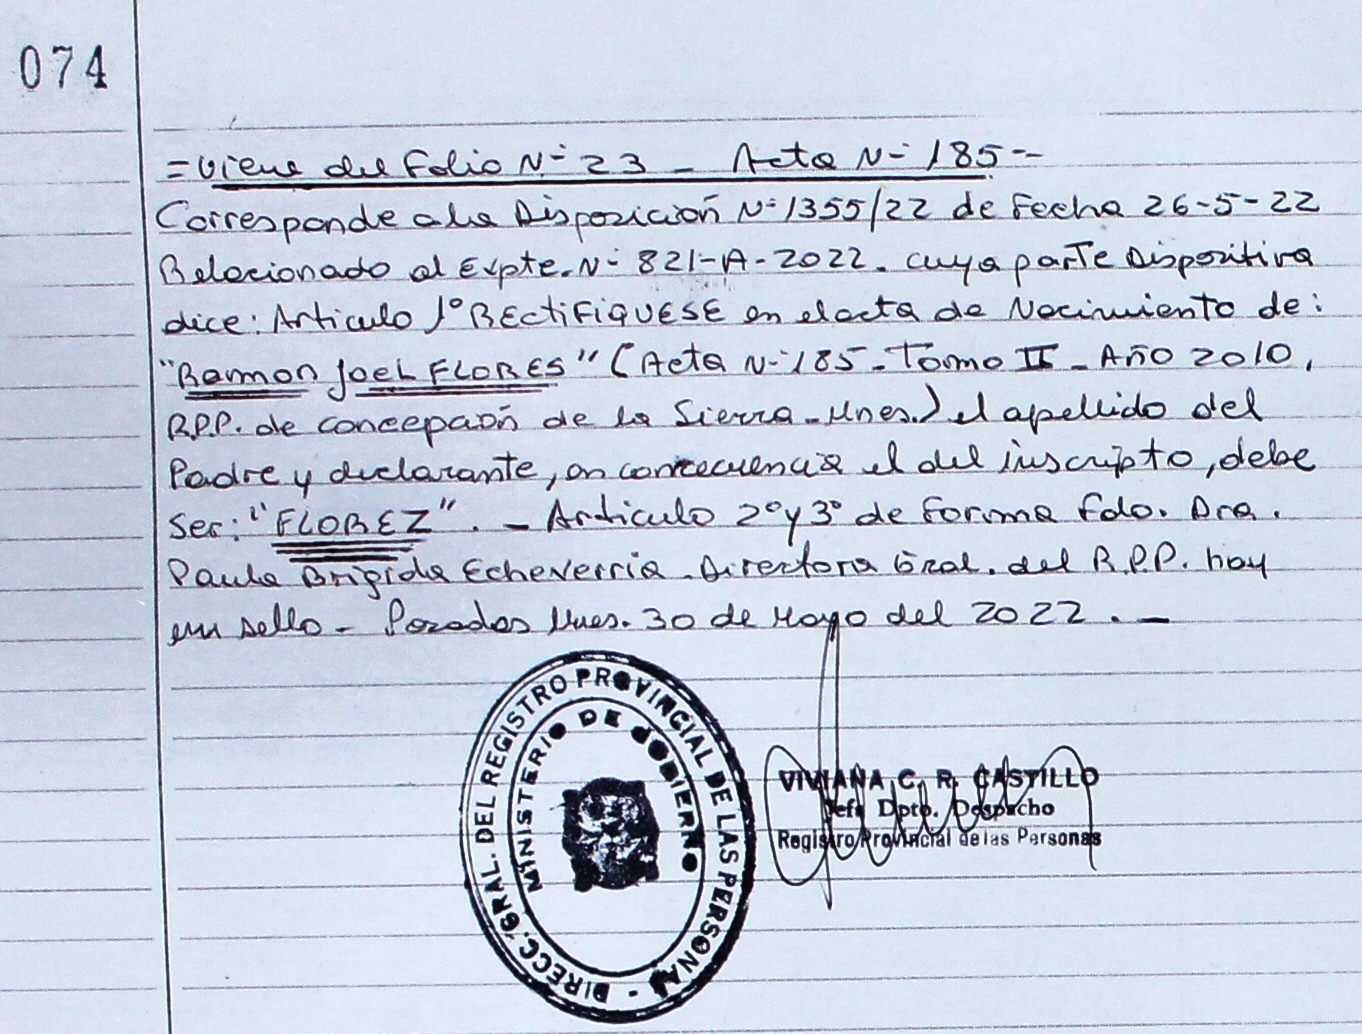 074
=Viene del Folio Nº 23 - Acta Nº 185--
Corresponde a la Disposición Nº 1355/22 de Fecha 26-5-22
Relacionado al Expte. Nº 821-A-2022. cuya parte Dispositiva
dice: Articulo 1º RECTIFIQUESE en el acta de Nacimiento de:
"Ramon Joel FLORES" (Acta Nº 185 - Tomo II - Año 2010,
R.P.P. de Concepción de la Sierra - Mnes.) el apellido del
Padre y declarante, en consecuencia el del inscripto, debe
Ser: "FLOREZ". - Articulo 2º y 3º de Forma Fdo. Dra.
Paula Brigida Echeverria. Directora Gral. del R.P.P. hay
un sello - Posadas Mnes. 30 de Mayo del 2022. -
DIRECC. GRAL. DEL REGISTRO PROVINCIAL DE LAS PERSONAS -
MINISTERIO DE GOBIERNO
VIVIANA C. R. CASTILLO
Jefe Dpto. Despacho
Registro Provincial de las Personas